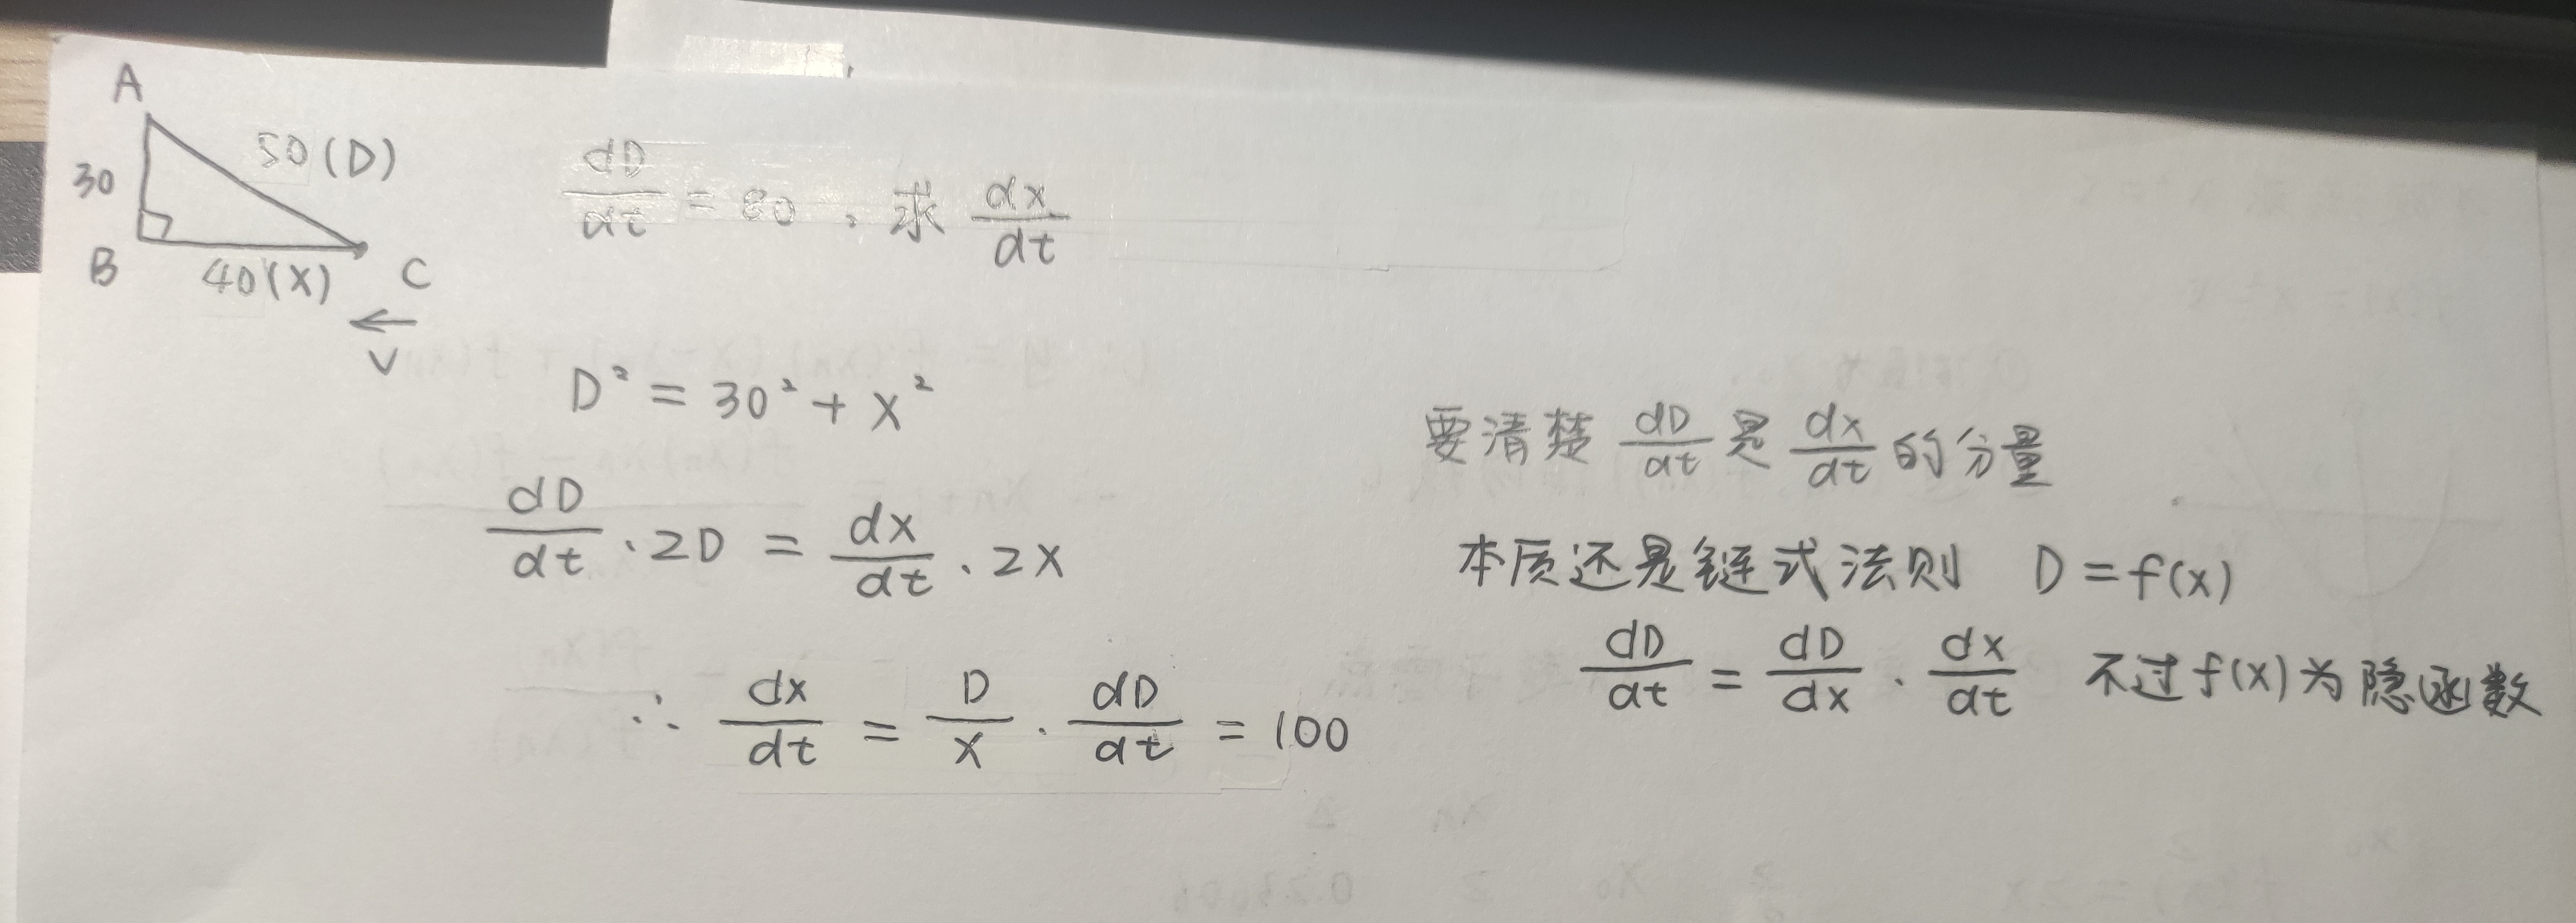 A
50(D)
30
B
40(X)
C
V
dD/dt = 80 , 求 dx/dt
D² = 30² + x²
dD/dt · 2D = dx/dt · 2x
∴ dx/dt = D/x · dD/dt = 100
要清楚 dD/dt 是 dx/dt 的分量
本质还是链式法则 D = f(x)
dD/dt = dD/dx · dx/dt 不过 f(x) 为隐函数